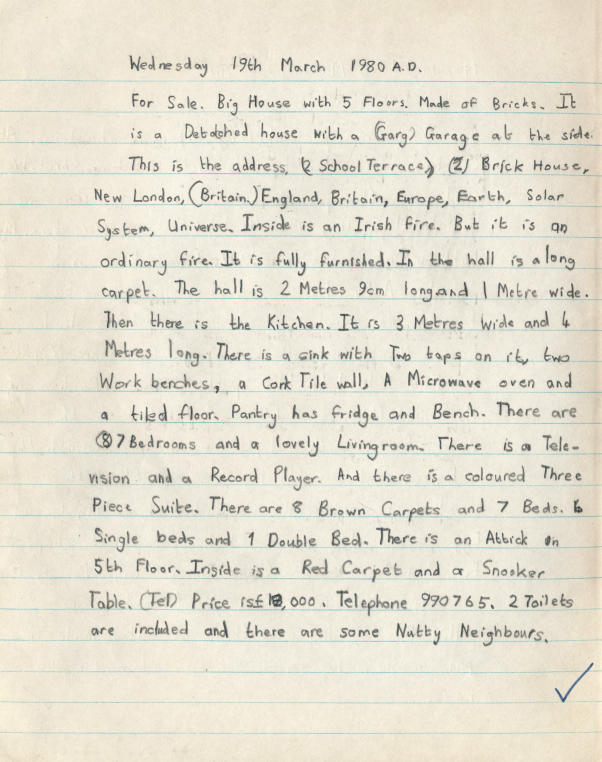 Wednesday 19th March 1980 A.D.
For Sale. Big House with 5 Floors. Made of Bricks. It
is a Detached house with a (Garg) Garage at the side.
This is the address, (2 School Terrace) (2) Brick House,
New London, (Britain.) England, Britain, Europe, Earth, Solar
System, Universe. Inside is an Irish fire. But it is an
ordinary fire. It is fully furnished. In the hall is a long
carpet. The hall is 2 Metres 9cm long and 1 Metre wide.
Then there is the Kitchen. It is 3 Metres Wide and 4
Metres long. There is a sink with Two taps on it, two
Work benches, a Cork Tile wall, A Microwave oven and
a tiled floor. Pantry has fridge and Bench. There are
(8) 7 Bedrooms and a lovely Livingroom. There is a Tele-
vision and a Record Player. And there is a coloured Three
Piece Suite. There are 8 Brown Carpets and 7 Beds. 6
Single beds and 1 Double Bed. There is an Attick on
5th Floor. Inside is a Red Carpet and a Snooker
Table. (Tel) Price is £ ,000. Telephone 990765. 2 Toilets
are included and there are some Nutty Neighbours.